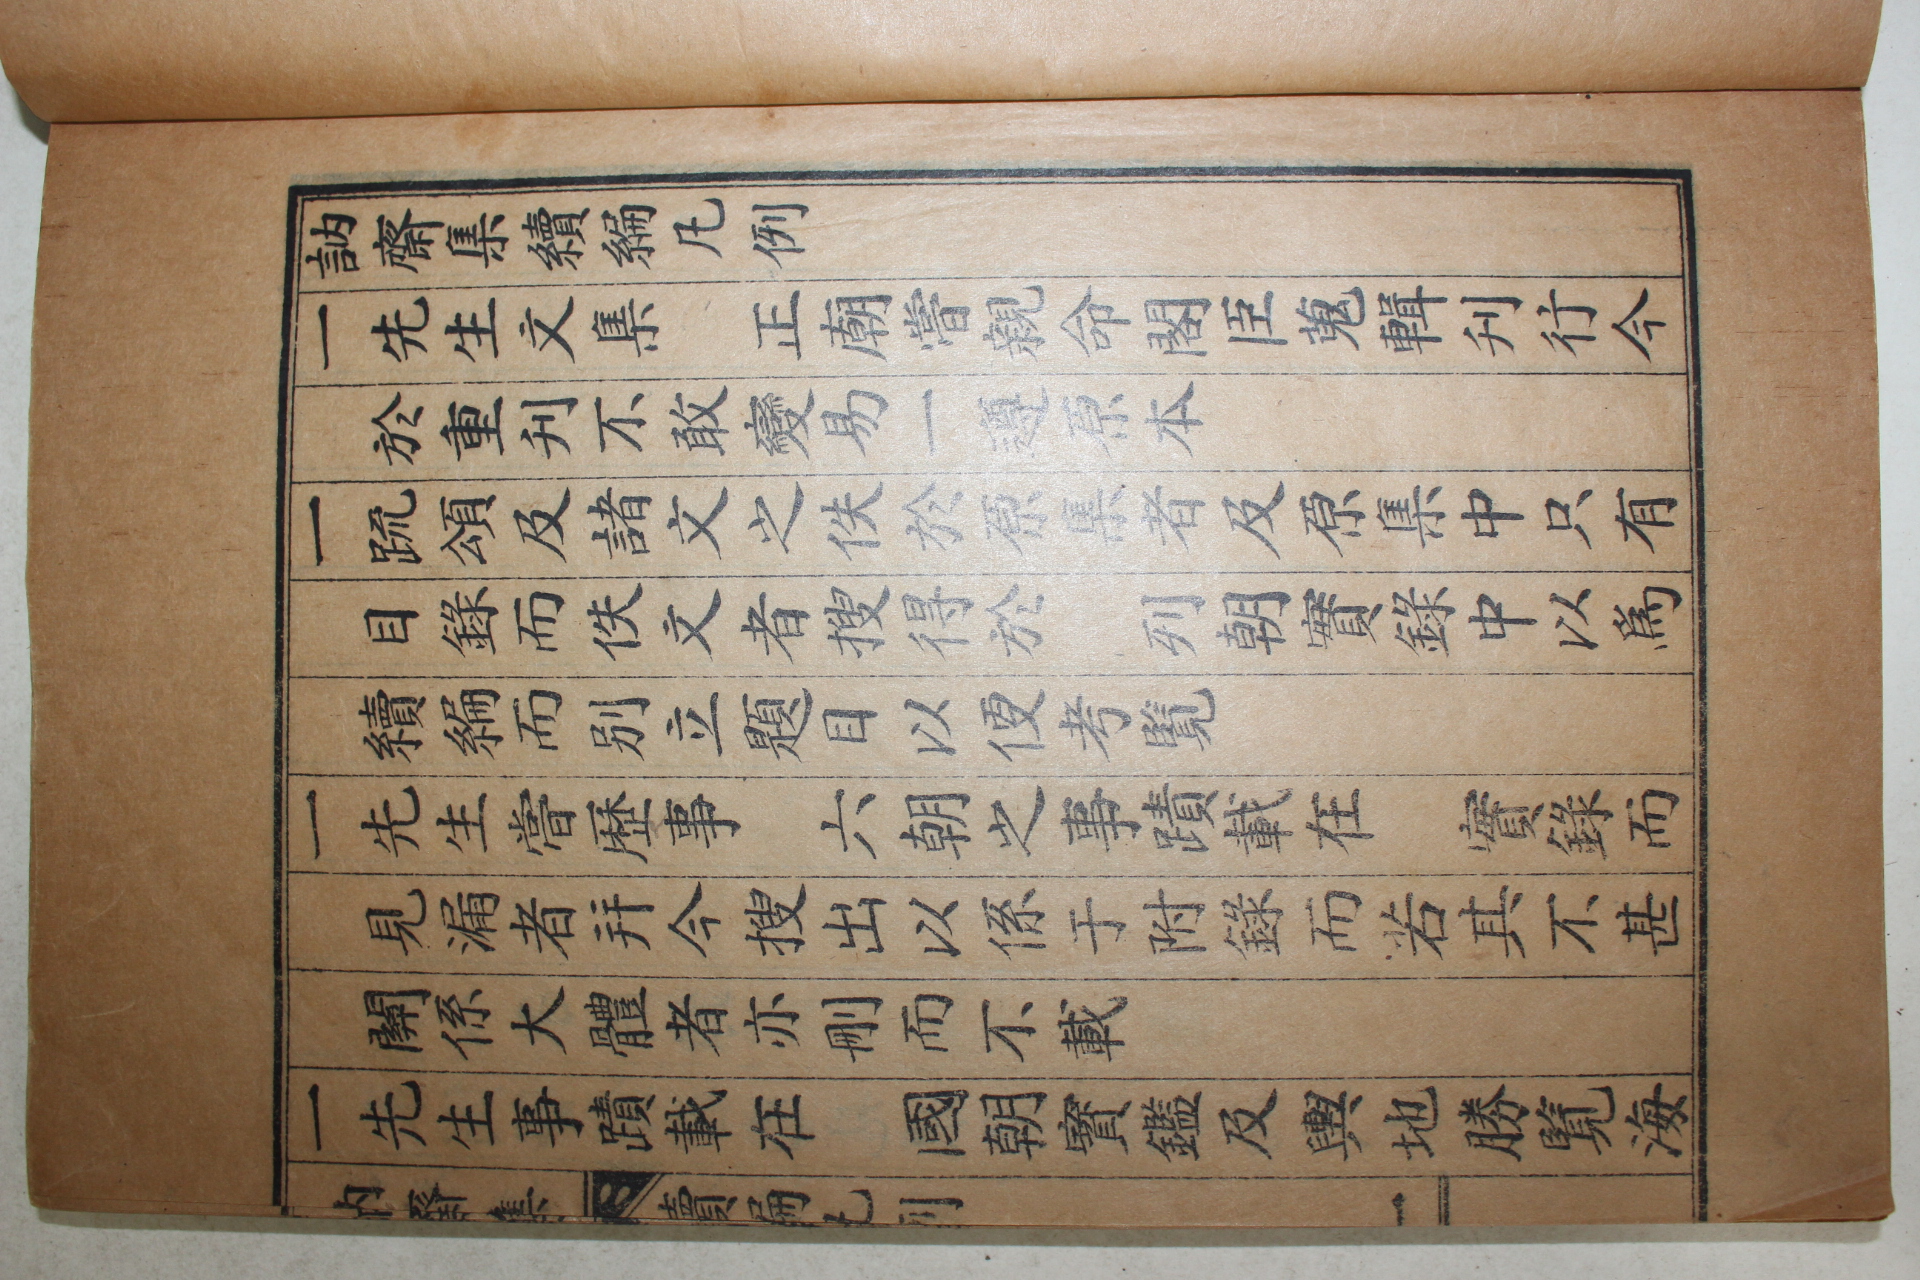 訥齋集續編凡例
一先生文集 正廟嘗親命閣臣蒐輯刋行今
於重刋不敢變易一遵原本
一疏頌及諸文之佚於原集者及原集中只有
目錄而佚文者搜得於 列朝實錄中以爲
續編而別立題目以便考覽
一先生嘗歷事 六朝之事蹟載在 實錄而
見漏者幷今搜出以係于附錄而若其不甚
關係大體者亦刪而不載
一先生事蹟載在 國朝寶鑑及輿地勝覽海
訥齋集 續編凡例 一